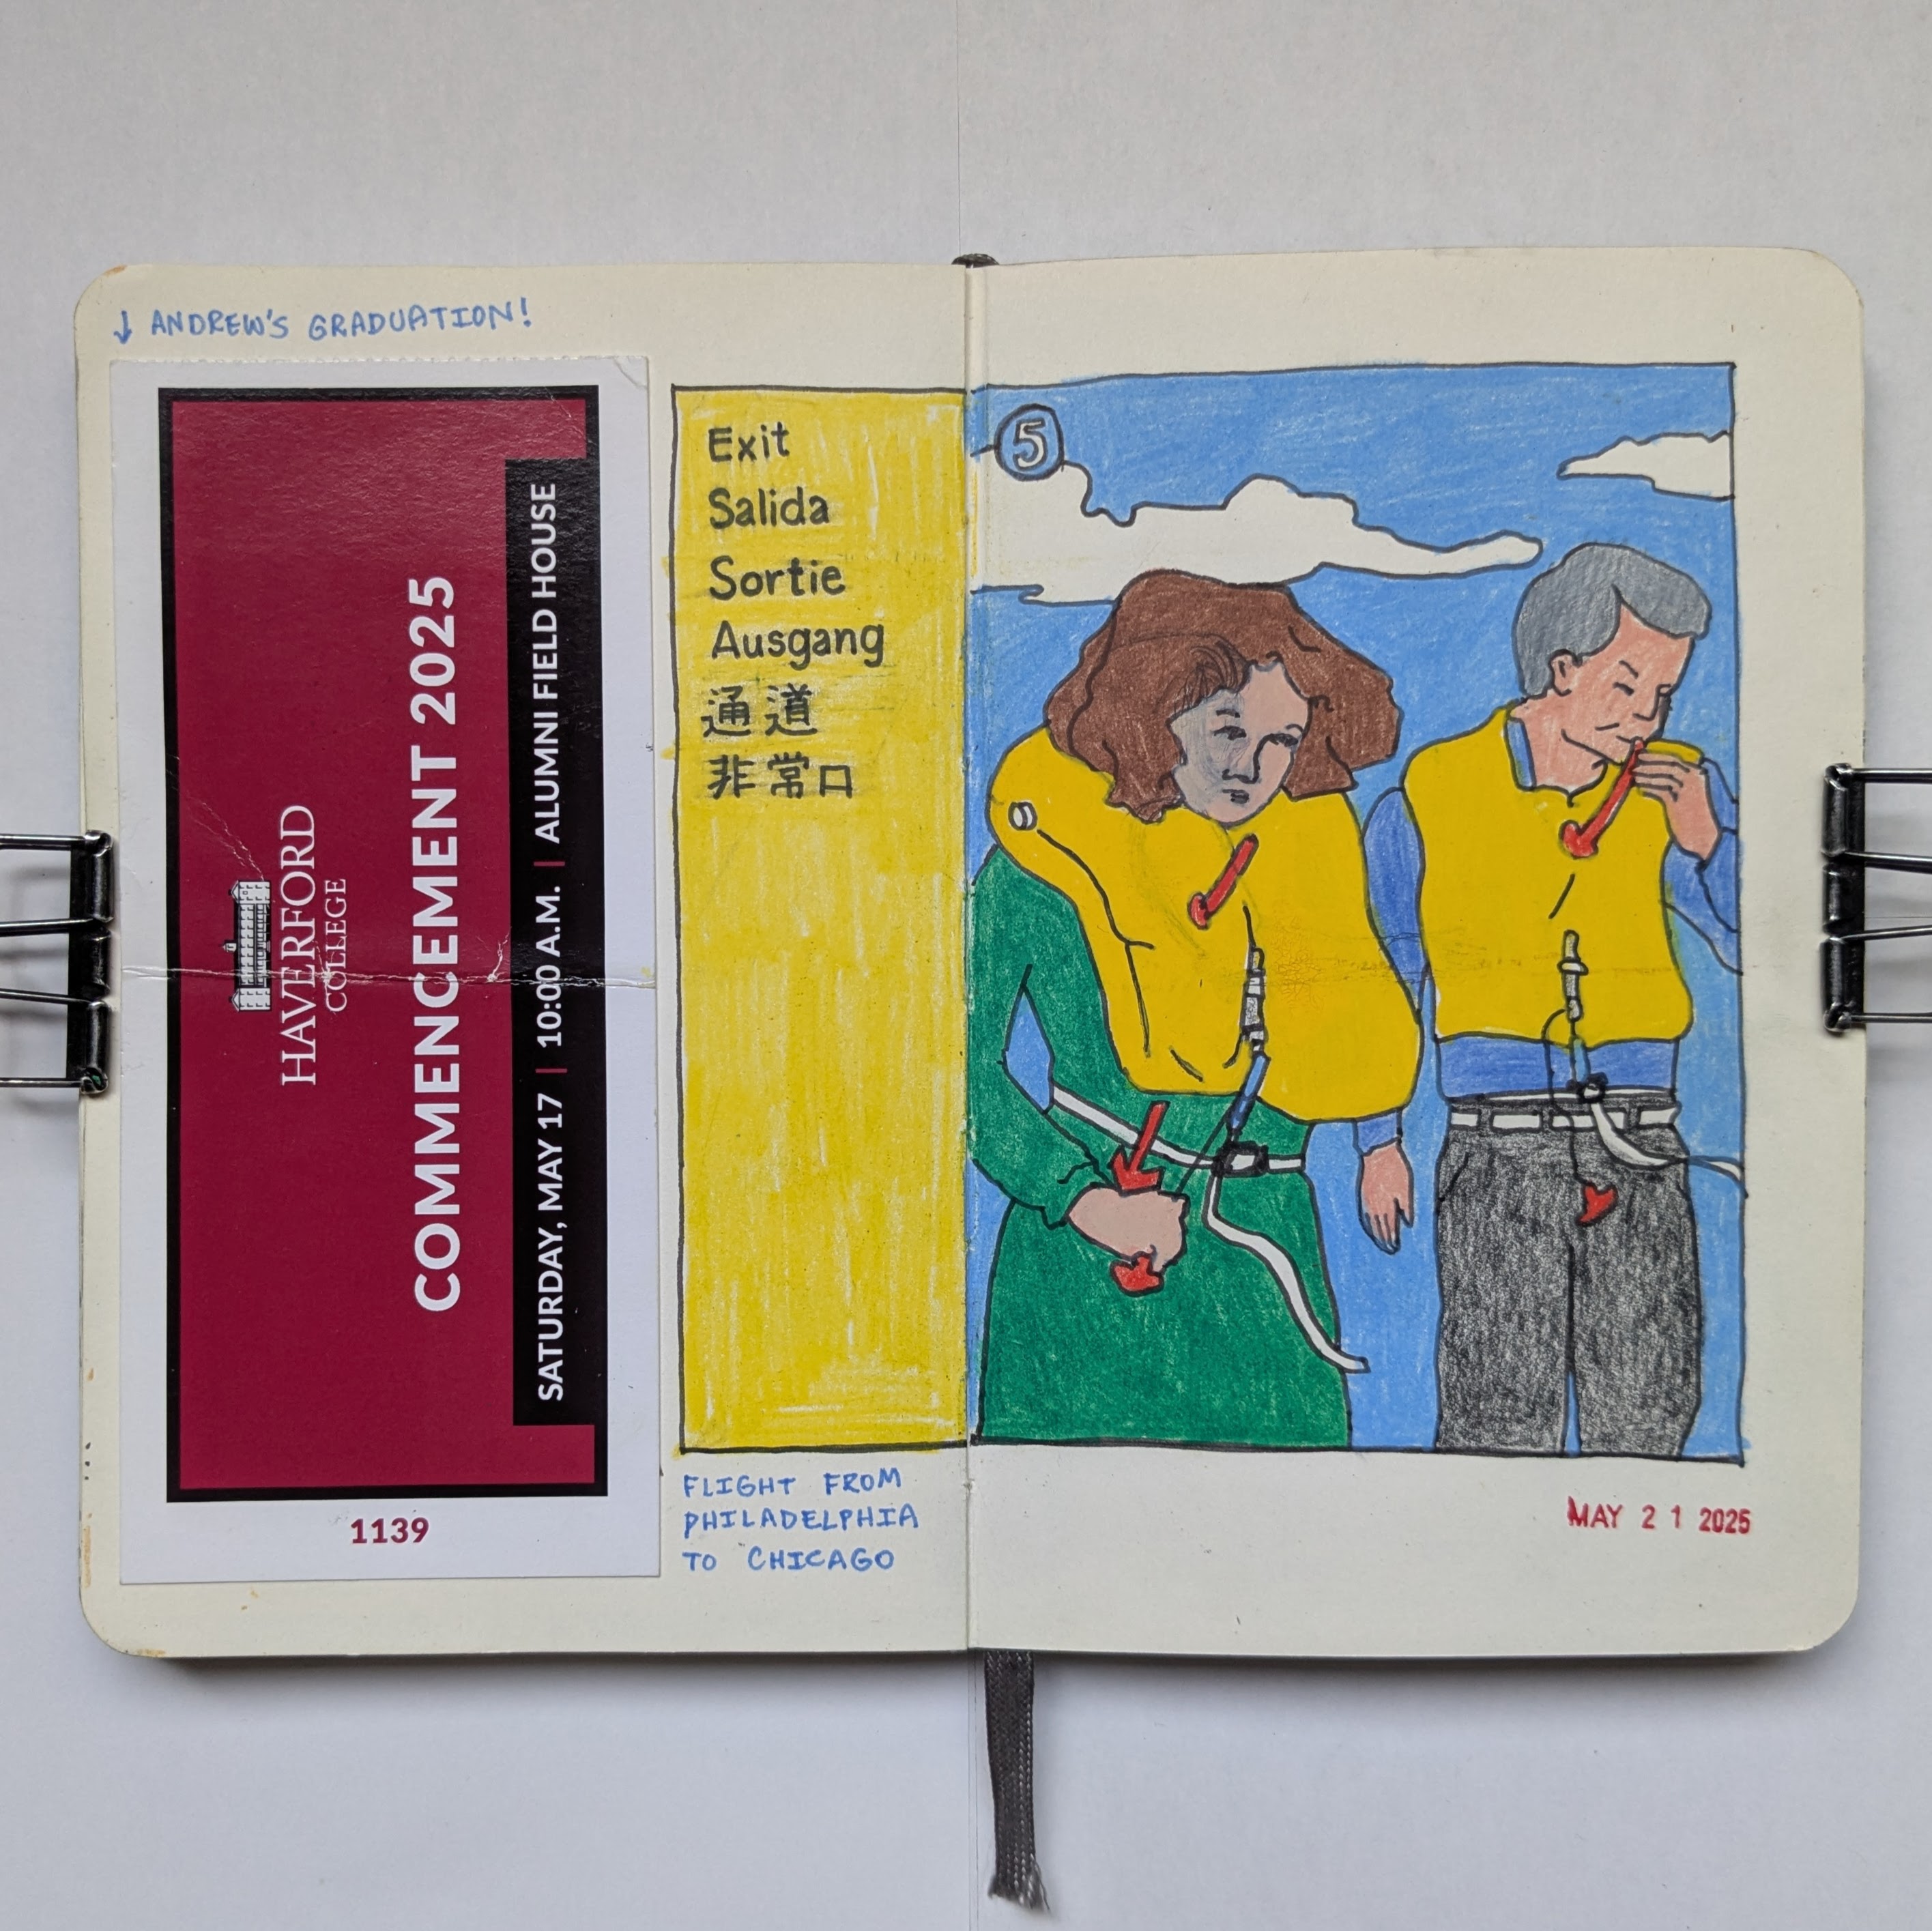 ↓ ANDREW'S GRADUATION!
HAVERFORD
COLLEGE
COMMENCEMENT 2025
SATURDAY, MAY 17 | 10:00 A.M. | ALUMNI FIELD HOUSE
1139
Exit
Salida
Sortie
Ausgang
通道
非常口
FLIGHT FROM
PHILADELPHIA
TO CHICAGO
5
MAY 21 2025